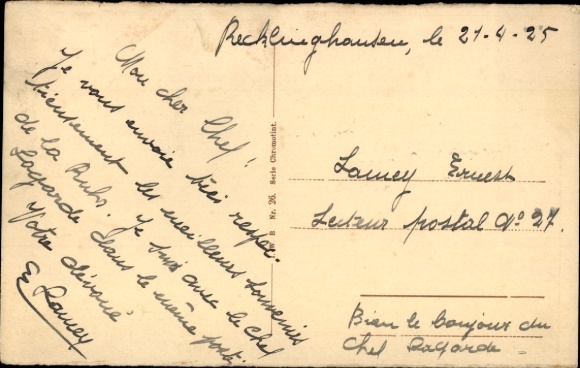 Recklinghausen, le 21-4-25
Mon cher Chef!
Je vous envoie très respec-
tueusement les meilleurs souvenirs
de la Ruhr. Je suis avec le chef
Lagarde dans le même poste.
Votre dévoué
E Lamey
W B Nr. 26. Serie Chromotint.
Lamey Ernest
Secteur postal No 27.
Bien le bonjour du
Chef Lagarde